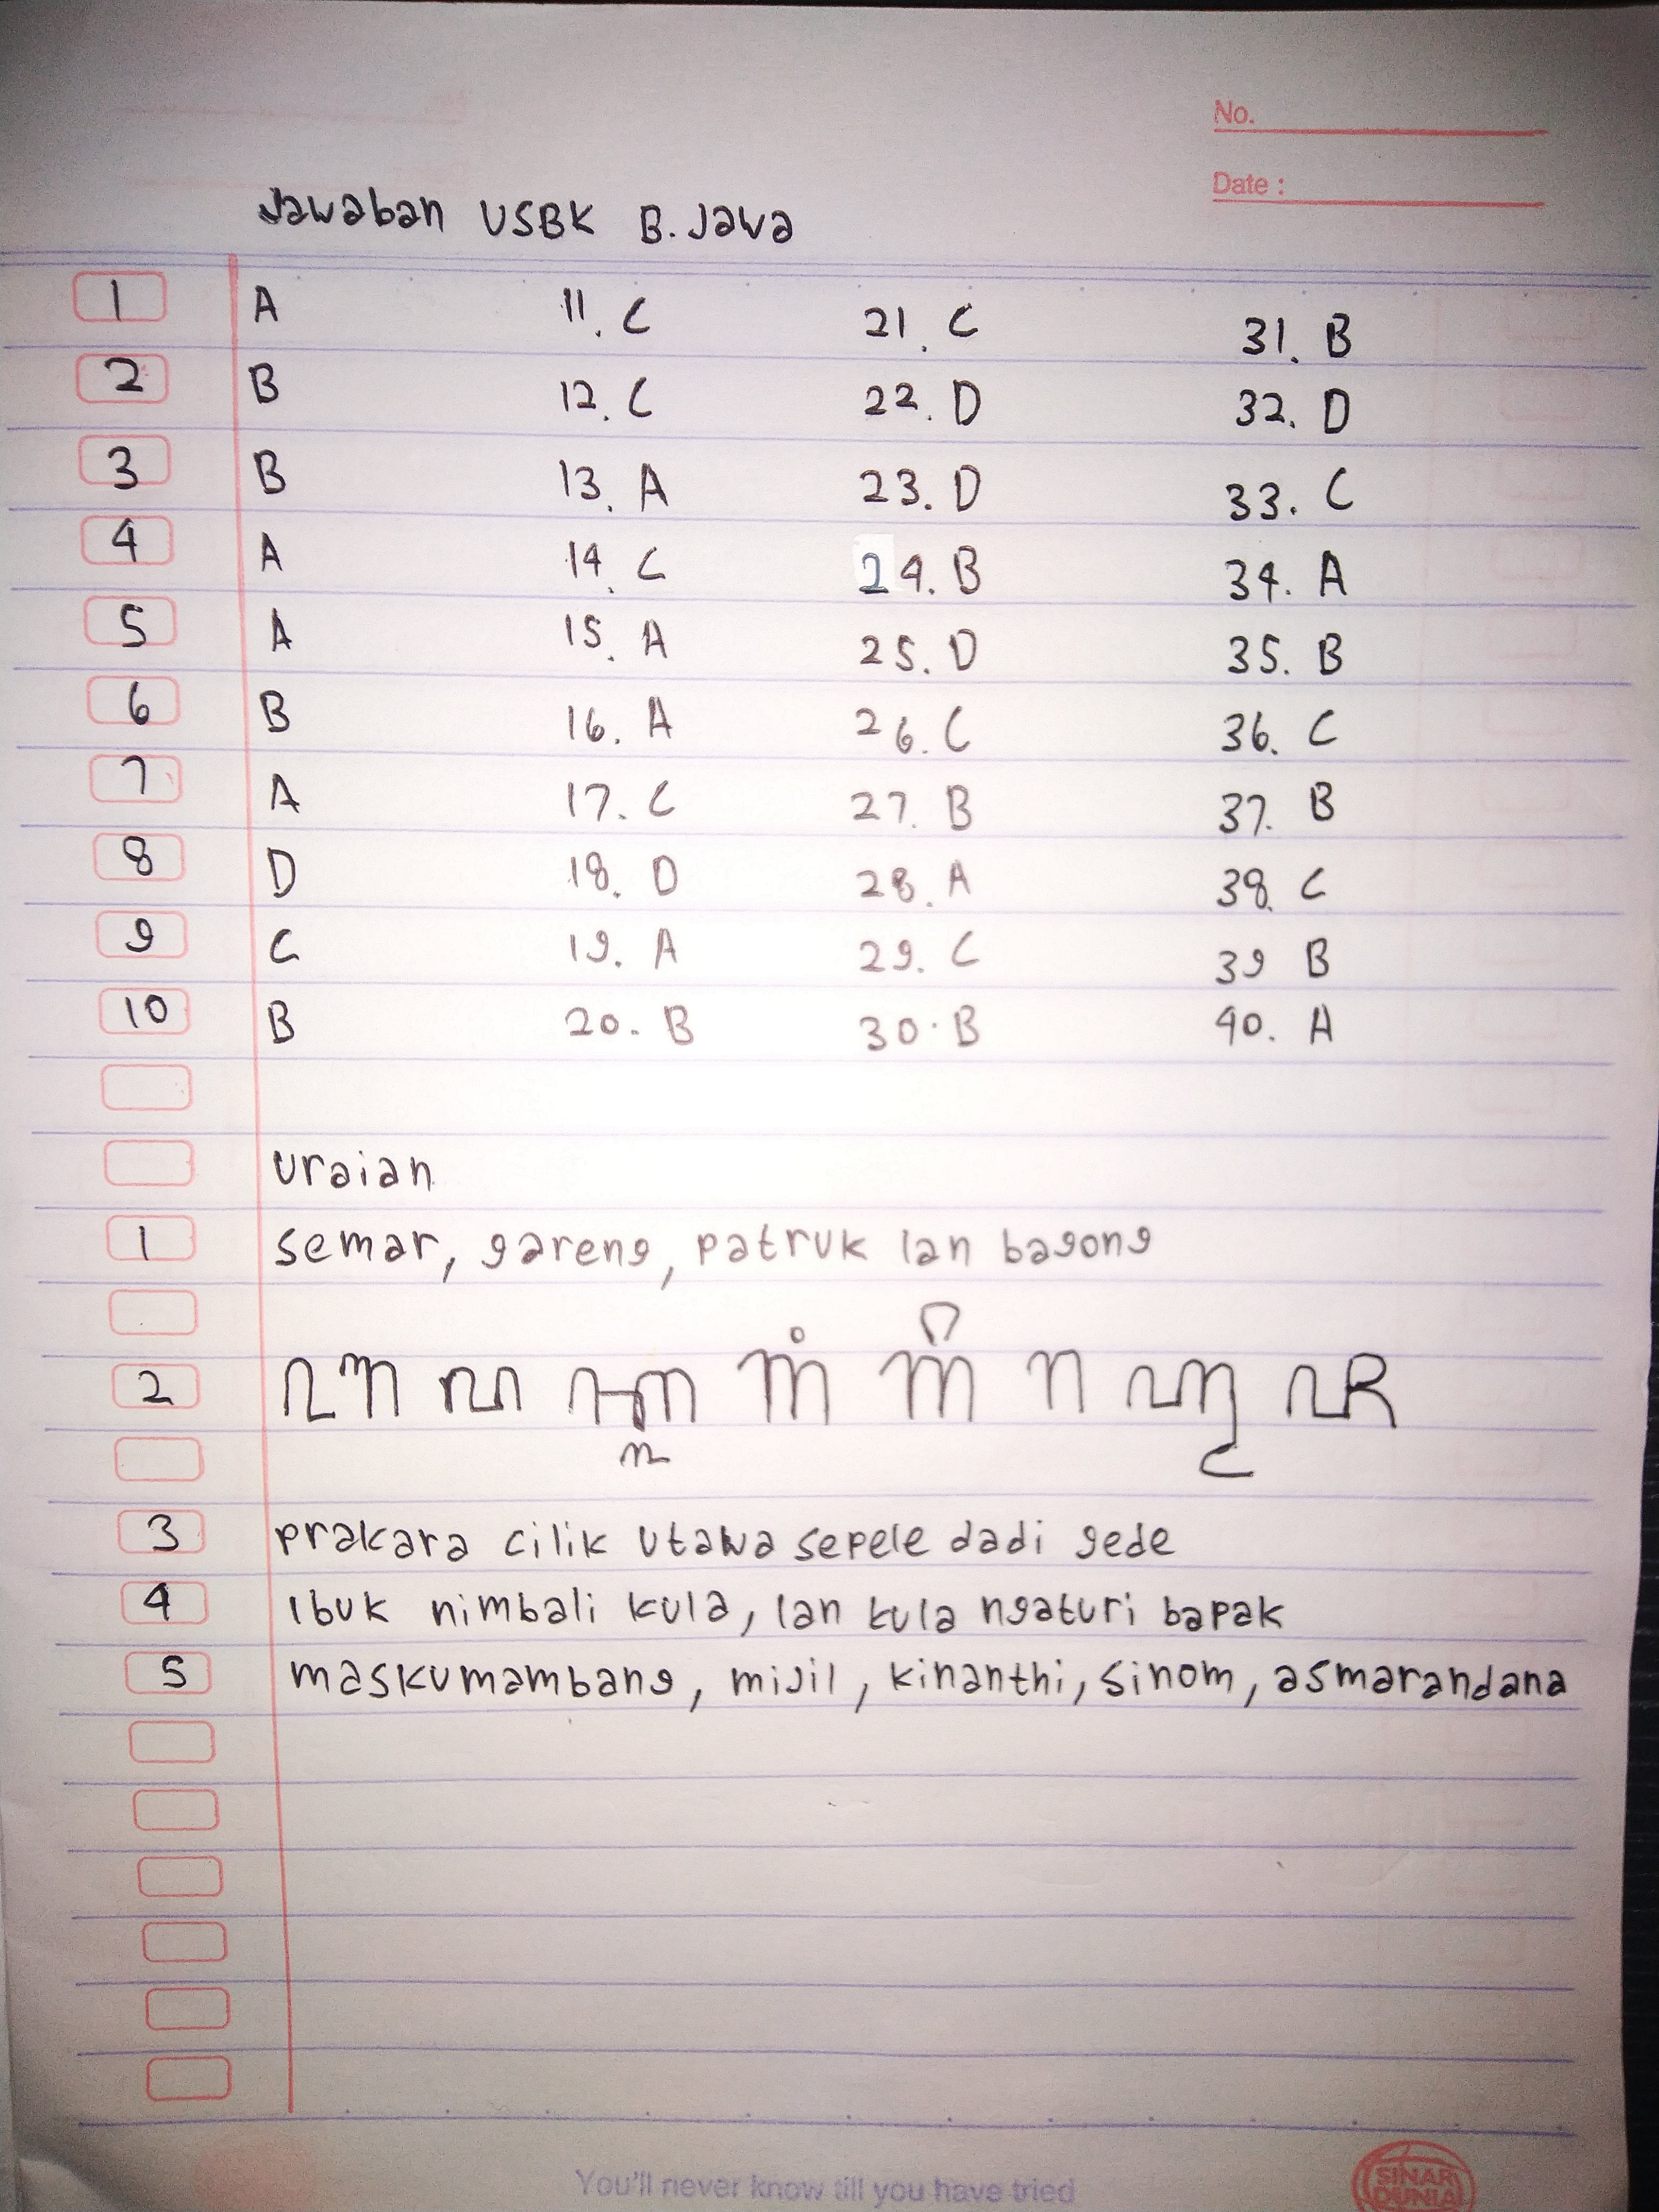 No.
Date :
Jawaban USBK B. Jawa
1 A 11. C 21. C 31. B
2 B 12. C 22. D 32. D
3 B 13. A 23. D 33. C
4 A 14. C 24. B 34. A
5 A 15. A 25. D 35. B
6 B 16. A 26. C 36. C
7 A 17. C 27. B 37. B
8 D 18. D 28. A 38. C
9 C 19. A 29. C 39 B
10 B 20. B 30. B 40. A
Uraian
1 Semar, gareng, patruk lan bagong
2
3 prakara cilik utawa sepele dadi gede
4 Ibuk nimbali kula, lan kula ngaturi bapak
5 maskumambang, mijil, kinanthi, sinom, asmarandana
You'll never know till you have tried
SINAR
DUNIA